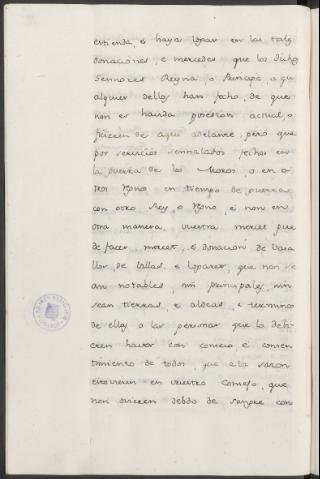 estienda, e haya logar en las tales
donaciones, e mercedes que los dichos
Sennores Reyna, o Principe o qu
alquier dellos han fecho, de que
non es havida posesion actual, o
ficieren de aqui adelante, pero que
por servicios sennalados fechos en
la guerra de los Moros, o en o
tro Regno en tiempo de guerra
con otro Rey, o Regno, e non en
otra manera, vuestra merced pue
de facer merced, e donacion de vasa
llos de villas, e logares, que non se
an notables, nin principales, nin
sean tierras, e aldeas, e termino
de ellas a las personas que lo debi
eren haver con consejo e consen
timiento de todos, que a la sazon
estovieren en vuestro Consejo, que
non ovieren debdo de sangre con